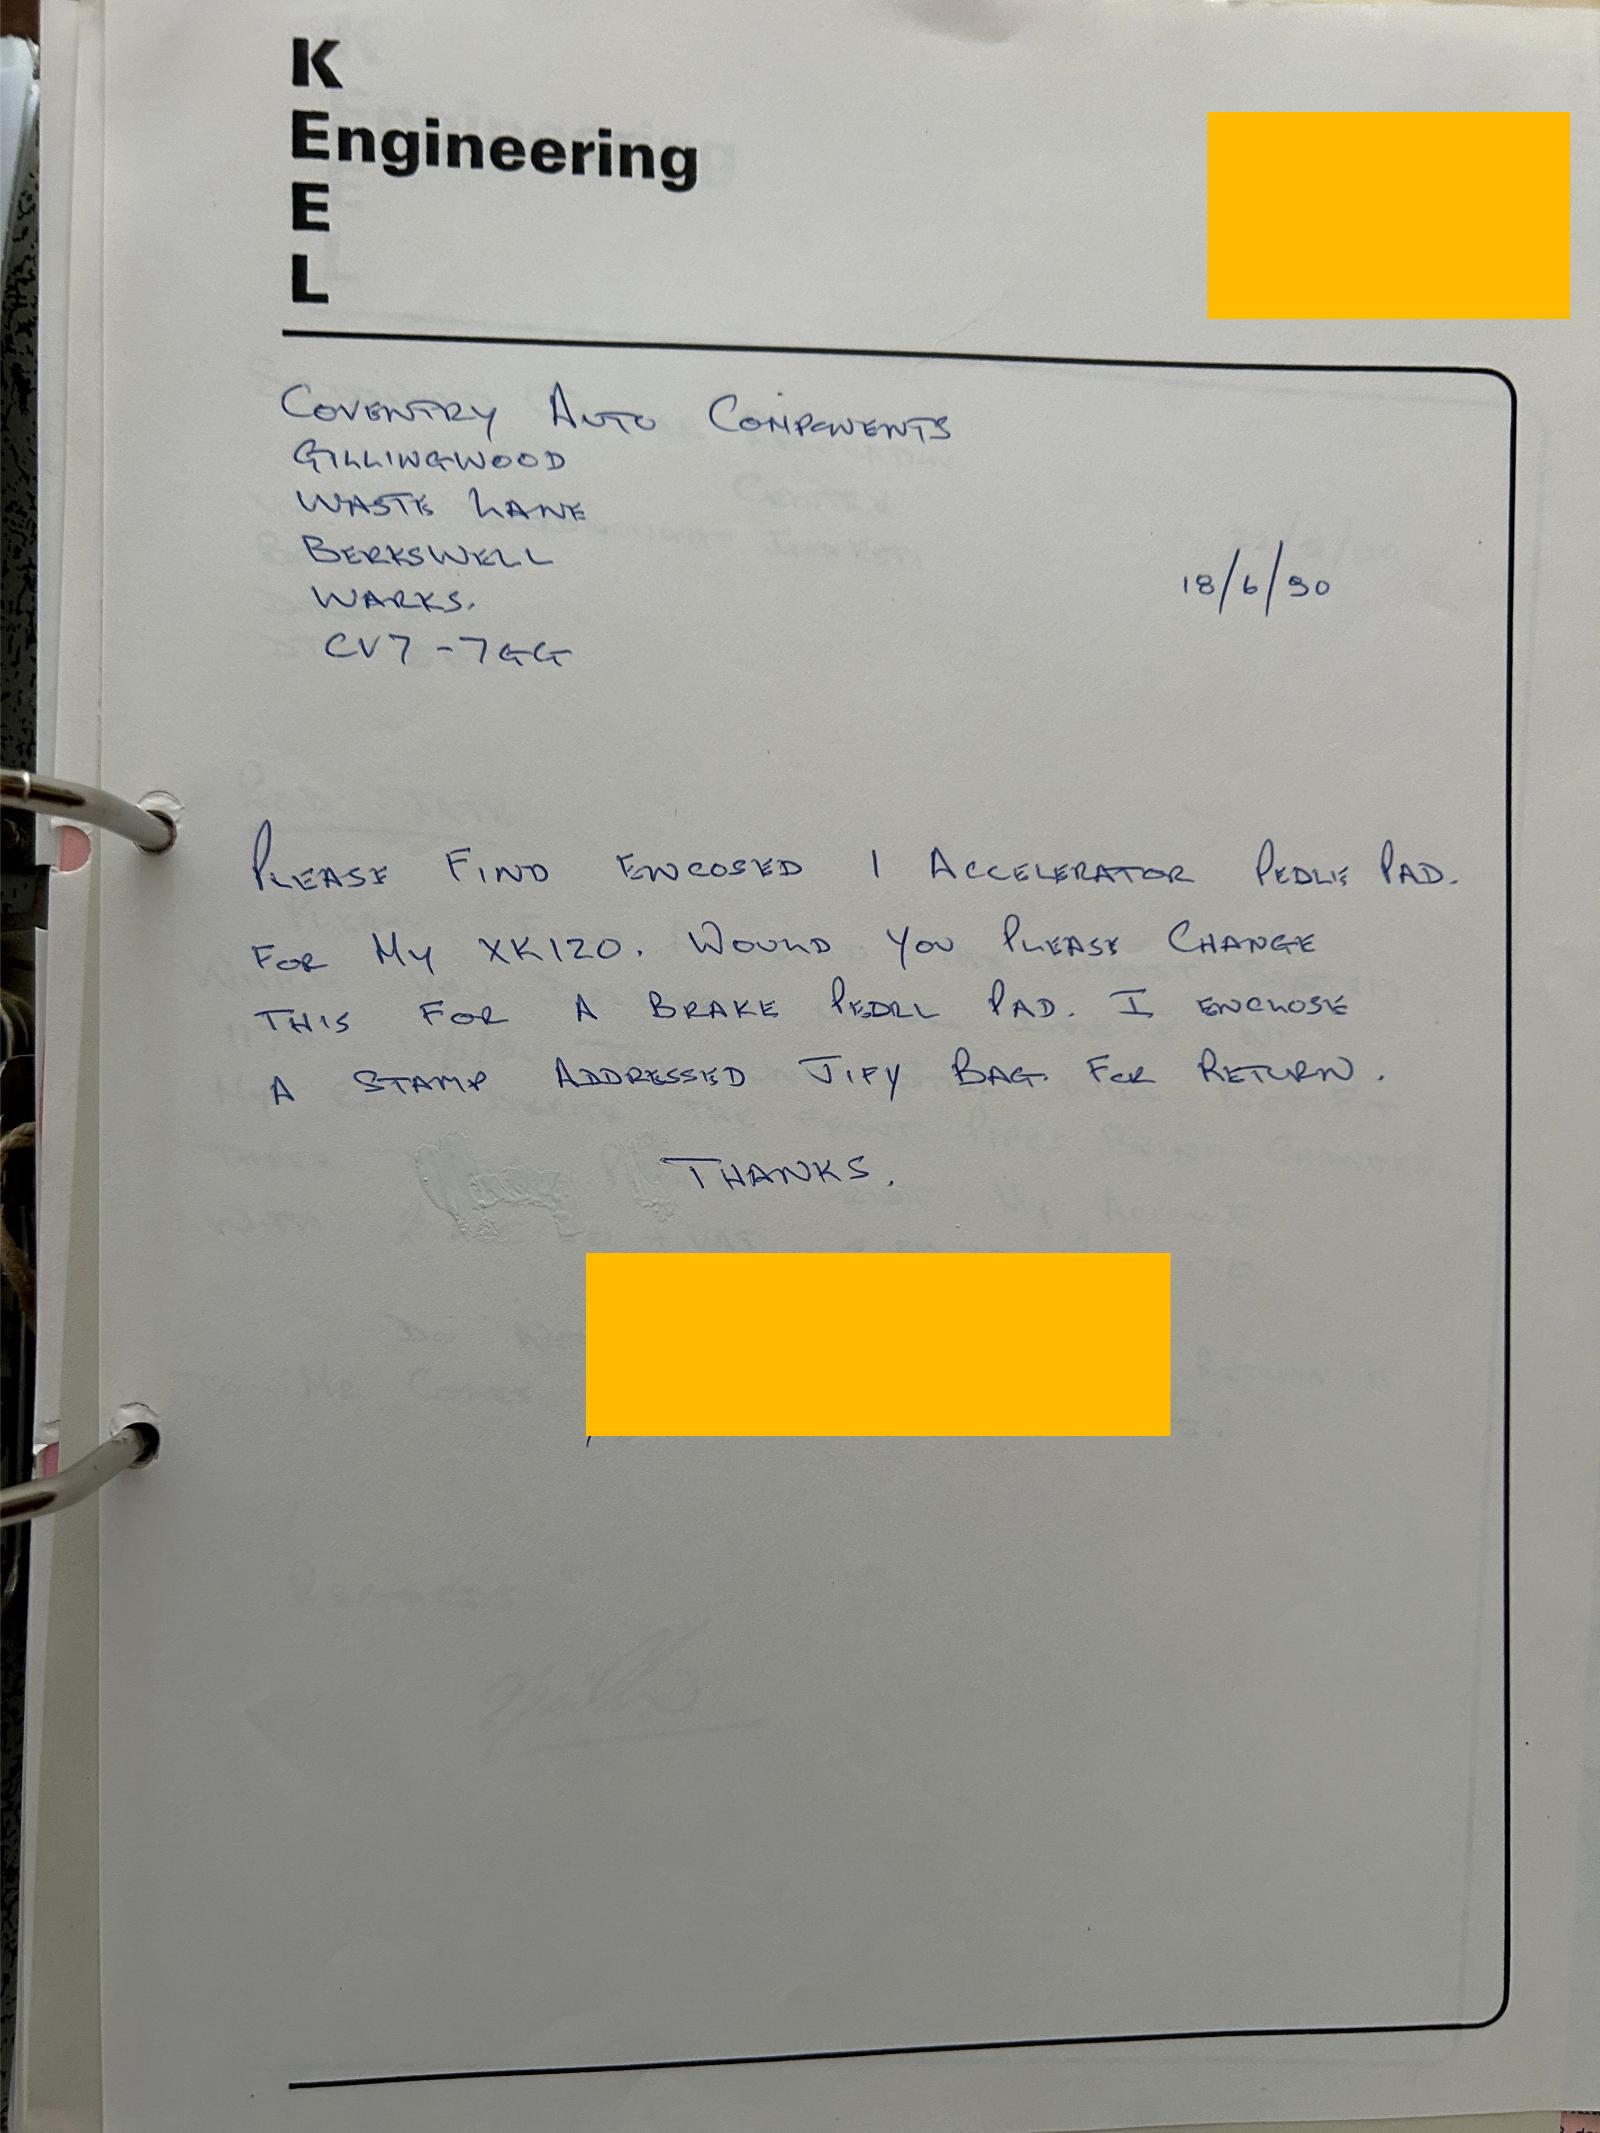 K
Engineering
E
L
COVENTRY AUTO COMPONENTS
GILLINGWOOD
WASTE LANE
BERKSWELL
WARKS.
CV7-7GG
18/6/90
PLEASE FIND ENCOSED 1 ACCELERATOR PEDLE PAD.
FOR MY XK120. WOULD YOU PLEASE CHANGE
THIS FOR A BRAKE PEDAL PAD. I ENCLOSE
A STAMP ADDRESSED JIFY BAG. FOR RETURN.
THANKS.